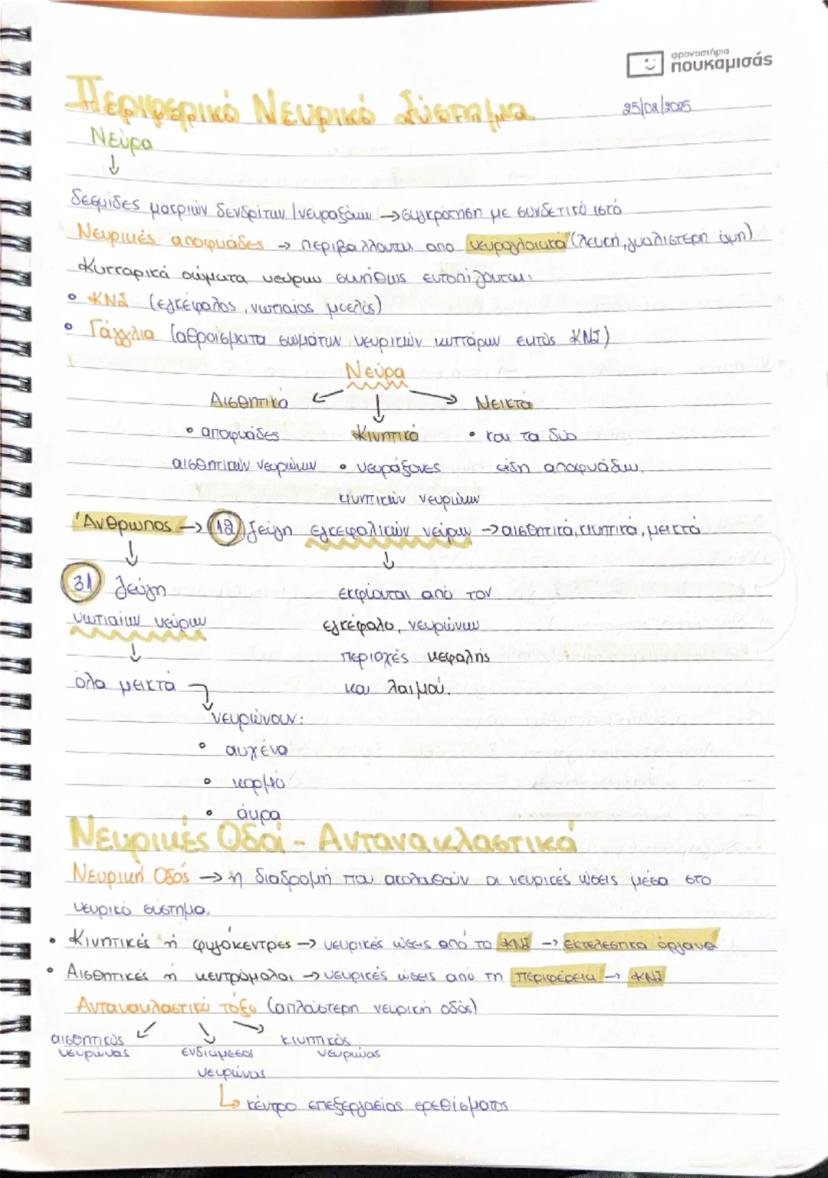 φροντιστήρια
πουκαμισάς
Περιφερικό Νευρικό Σύστημα
25/08/2025
Νεύρα
δεσμίδες μακριών δενδρίτων /νευραξόνων → συγκρότηση με συνδετικό ιστό
Νευρικές αποφυάδες → περιβάλλονται από νευρογλοιακά (λευκή, γυαλιστερή όψη)
Κυτταρικά σώματα νεύρων συνήθως εντοπίζονται:
• ΚΝΣ (εγκέφαλος, νωτιαίος μυελός)
• Γάγγλια (αθροίσματα σωμάτων νευρικών κυττάρων εκτός ΚΝΣ)
Νεύρα
Αισθητικά Μεικτά
• αποφυάδες Κινητικά • και τα δύο
αισθητικών νευρώνων • νευράξονες είδη αποφυάδων.
κινητικών νευρώνων
Άνθρωπος → 12 ζεύγη εγκεφαλικών νεύρων → αισθητικά, κινητικά, μεικτά
31 ζεύγη εκφύονται από τον
νωτιαίων νεύρων εγκέφαλο, νευρώνουν
περιοχές κεφαλής
όλα μεικτά και λαιμού.
νευρώνουν:
• αυχένα
• κορμό
• άκρα
Νευρικές Οδοί - Αντανακλαστικά
Νευρική Οδός → η διαδρομή που ακολουθούν οι νευρικές ώσεις μέσα στο
νευρικό σύστημα.
• Κινητικές ή φυγόκεντρες → νευρικές ώσεις από το ΚΝΣ → εκτελεστικά όργανα
• Αισθητικές ή κεντρομόλοι → νευρικές ώσεις από τη περιφέρεια → ΚΝΣ
Αντανακλαστικό τόξο (απλούστερη νευρική οδός)
αισθητικός ενδιάμεσοι κινητικός
νευρώνας νευρώνας νευρώνας
κέντρο επεξεργασίας ερεθίσματος